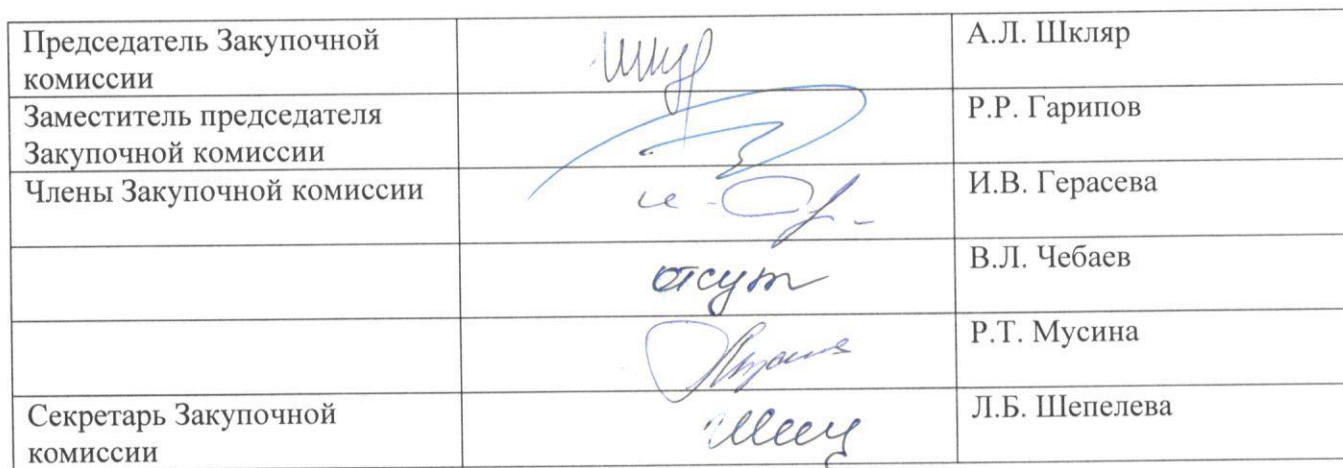 Председатель Закупочной
комиссии
А.Л. Шкляр
Заместитель председателя
Закупочной комиссии
Р.Р. Гарипов
Члены Закупочной комиссии
И.В. Герасева
отсут
В.Л. Чебаев
Р.Т. Мусина
Секретарь Закупочной
комиссии
Л.Б. Шепелева